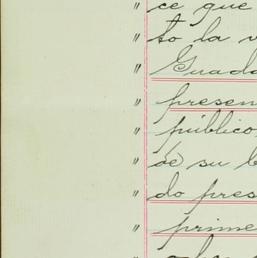 " ce que
" to la v
" Guada
" presen
" público
" de su b
" do pres
" prime